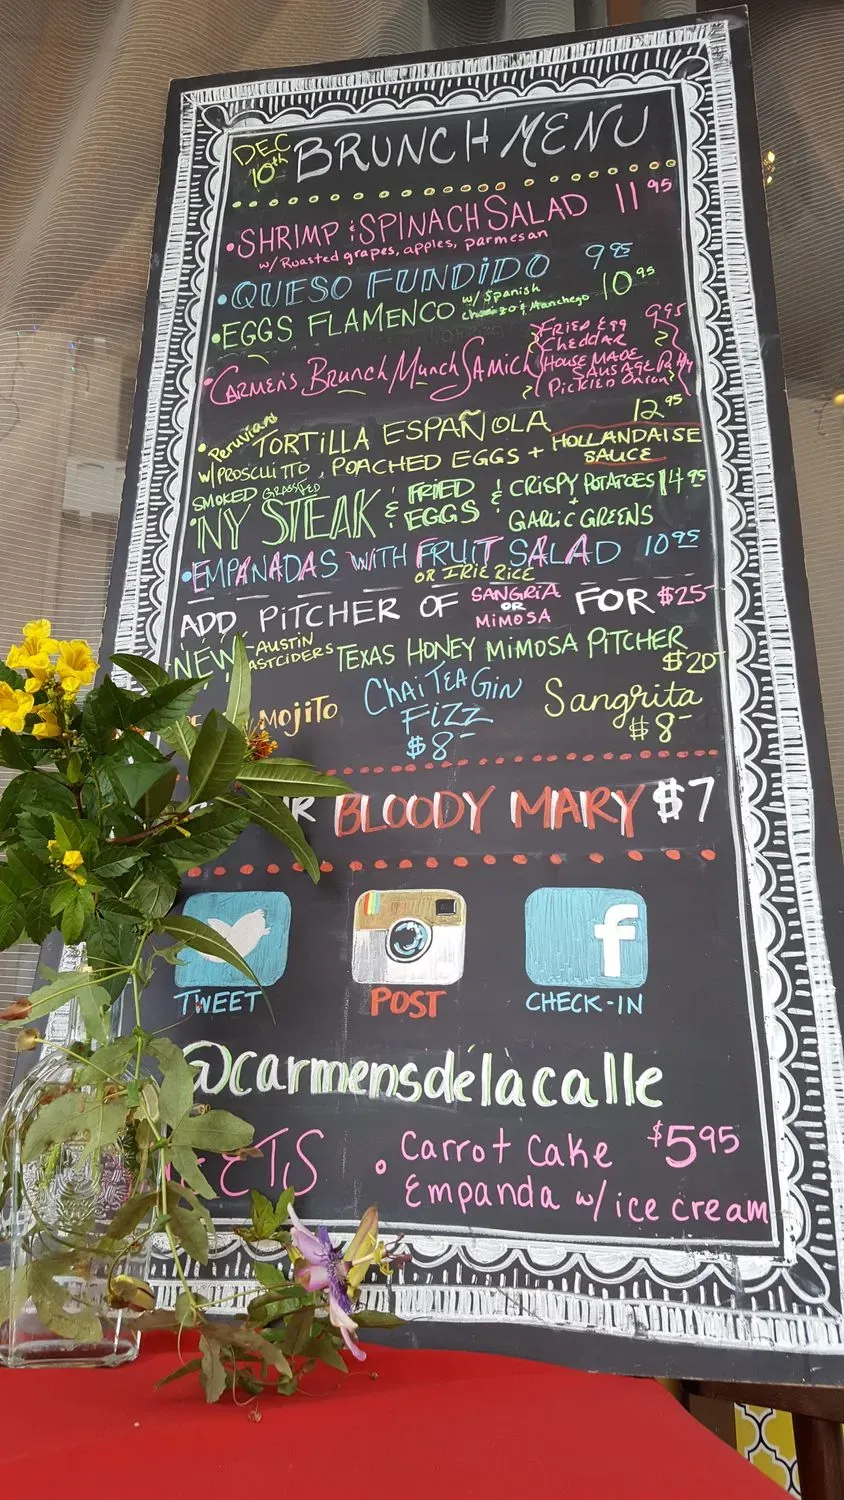 DEC 10th BRUNCH MENU
• SHRIMP & SPINACH SALAD 11 95
w/ Roasted grapes, apples, parmesan
• QUESO FUNDIDO 9 95
• EGGS FLAMENCO w/ Spanish chorizo & Manchego 10 95
• CARMEN'S BRUNCH MUNCH SAMICH 9 95
FRIED EGG
CHEDDAR
HOUSE MADE
SAUSAGE Patty
PICKLED ONION
• Peruvian TORTILLA ESPAÑOLA 12 95
W/ PROSCUITTO, POACHED EGGS + HOLLANDAISE SAUCE
SMOKED GRASSFED
• NY STEAK & FRIED EGGS & CRISPY POTATOES + GARLIC GREENS 14 95
• EMPANADAS WITH FRUIT SALAD 10 95
OR IRIE RICE
ADD PITCHER OF SANGRIA OR MIMOSA FOR $25-
NEW -AUSTIN EASTCIDERS TEXAS HONEY MIMOSA PITCHER $20-
MOJITO
CHAI TEA GIN FIZZ $8-
Sangrita $8-
BLOODY MARY $7
f
TWEET POST CHECK-IN
@carmensdelacalle
• Carrot Cake $5 95
Empanda w/ ice cream